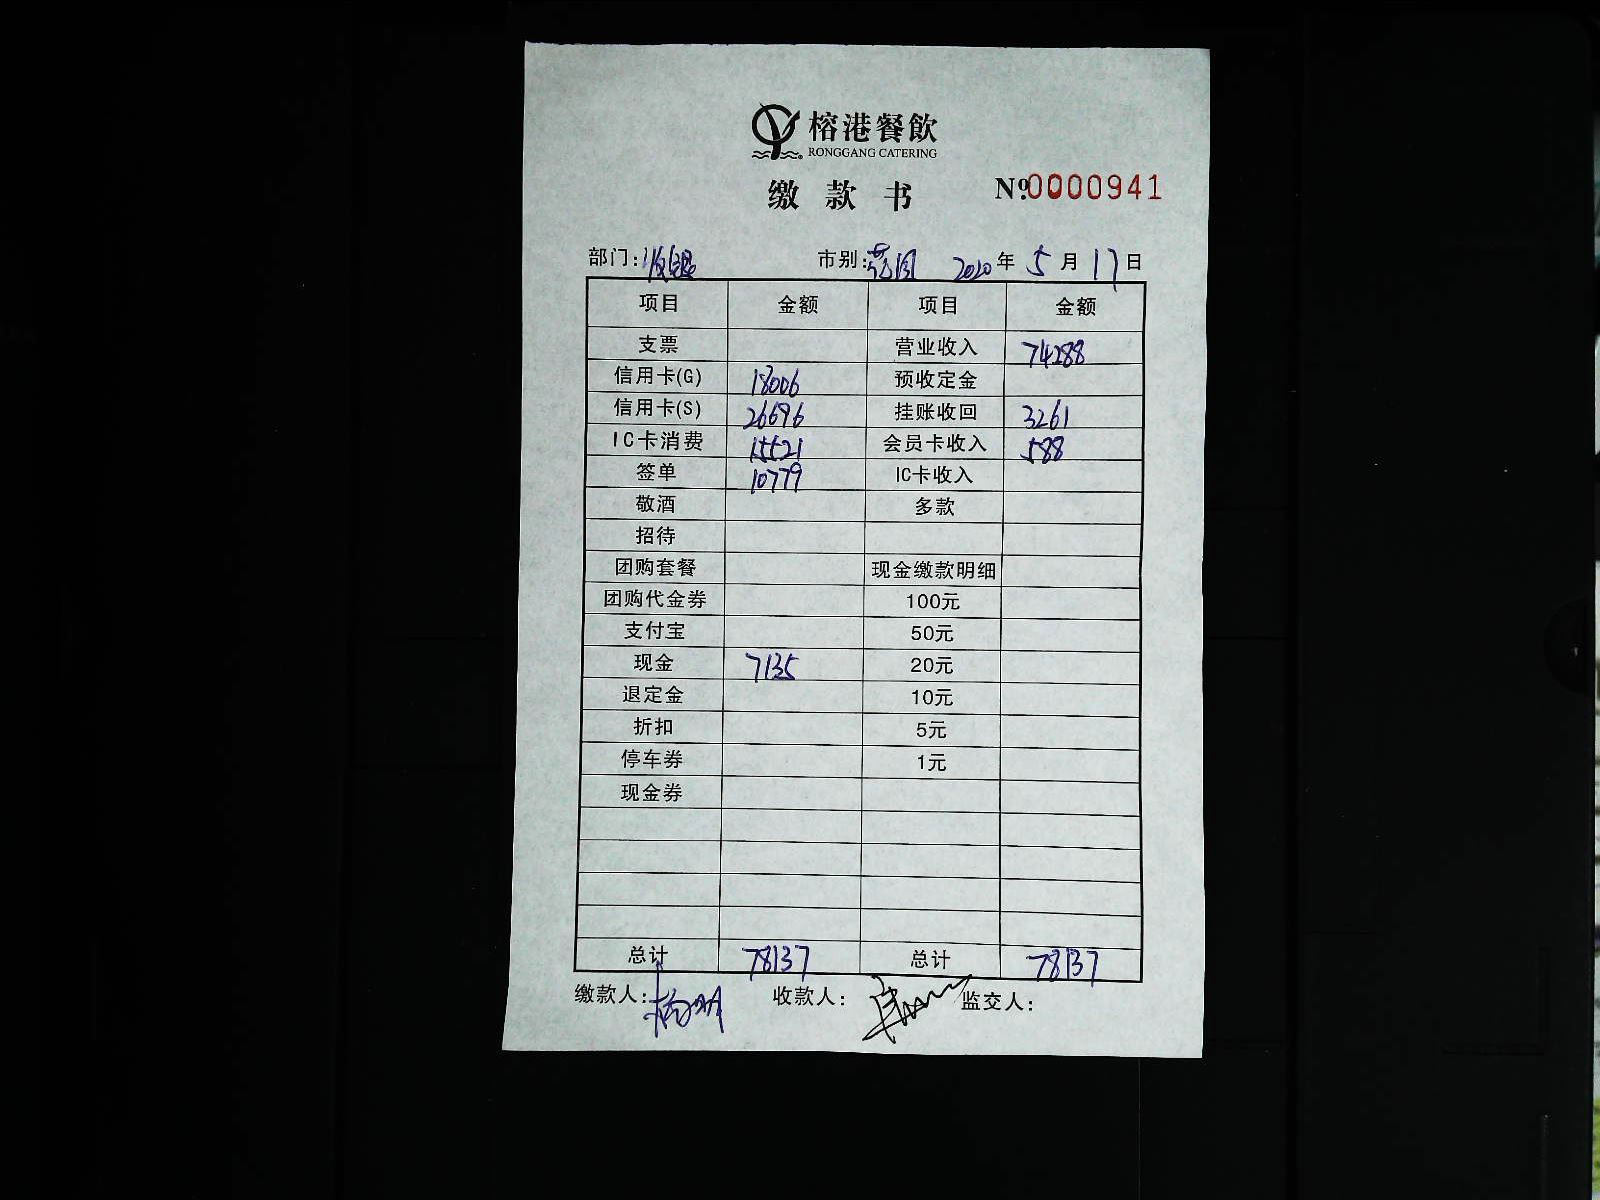 榕港餐飲
RONGGANG CATERING
缴款书 №0000941
部门:收银 市别: 2020年5月17日
项目 金额 项目 金额
支票 营业收入 74288
信用卡(G) 18006 预收定金
信用卡(S) 26696 挂账收回 3261
IC卡消费 15521 会员卡收入 588
签单 10779 IC卡收入
敬酒 多款
招待
团购套餐 现金缴款明细
团购代金券 100元
支付宝 50元
现金 7135 20元
退定金 10元
折扣 5元
停车券 1元
现金券
总计 78137 总计 78137
缴款人: 收款人: 监交人: